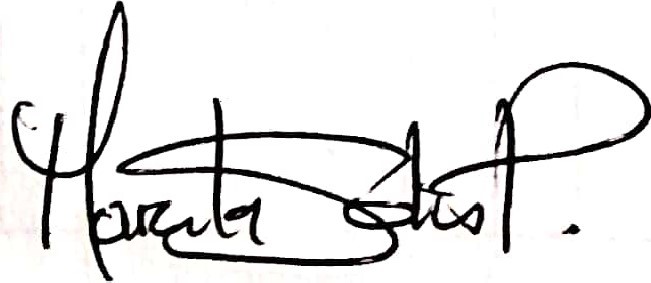 Marita Solís P.